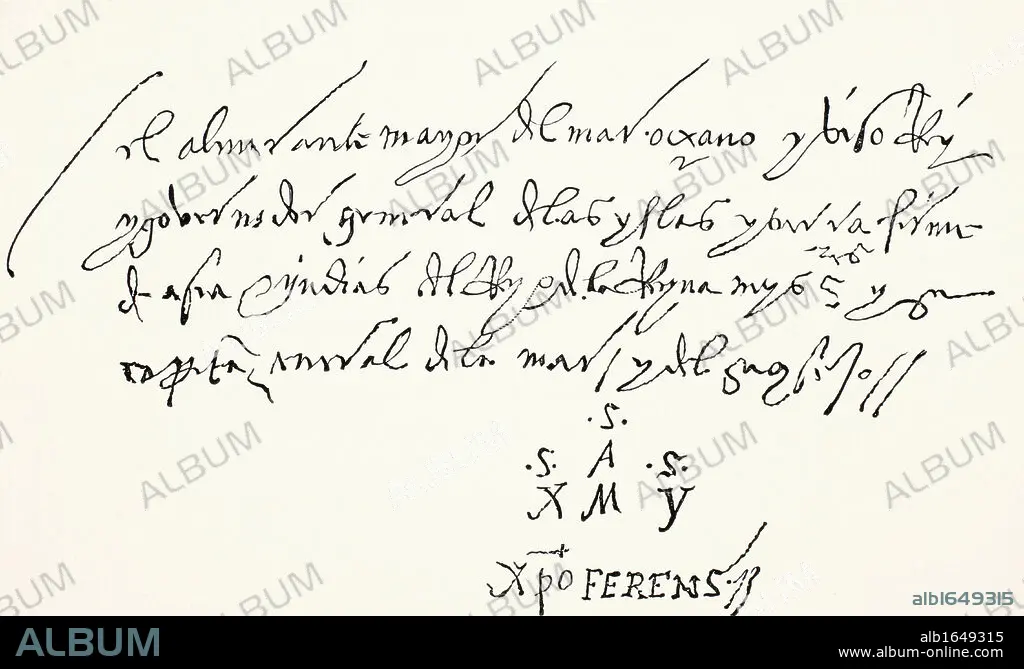 el almirante mayor del mar oçeano y viso Rey
y governador general de las yslas y tierra firme
de asia e yndias del Rey e de la Reyna mys S^res y su
capitan general de la mar y del Consejo
.S.
.S. A .S.
X M Y
Xpo FERENS
alb1649315
ALBUM
alb1649315
www.album-online.com